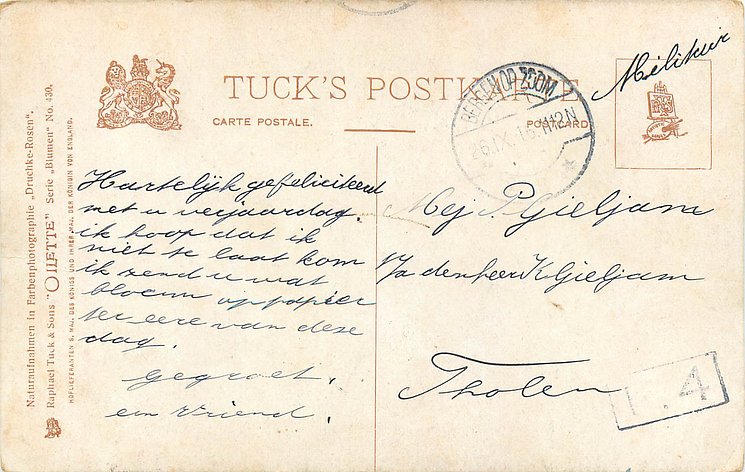 Naturaufnahmen in Farbenphotographie „Druchke-Rosen“.
Raphael Tuck & Sons "OILETTE" Serie „Blumen“ No. 430.
HOFLIEFERANTEN S. MAJ. DES KÖNIGS UND IHRER MAJ. DER KÖNIGIN VON ENGLAND.
TUCK'S POSTKARTE
CARTE POSTALE.
POSTCARD
BERGEN OP ZOOM
12N
Militair
Hartelijk gefeliciteerd
met u verjaardag.
ik hoop dat ik
niet te laat kom
ik zend u wat
bloem op papier
ter eere van deze
dag.
Gegroet,
een Vriend.
Mej P. Gieljam
p/a den heer K Gieljam
Tholen
4